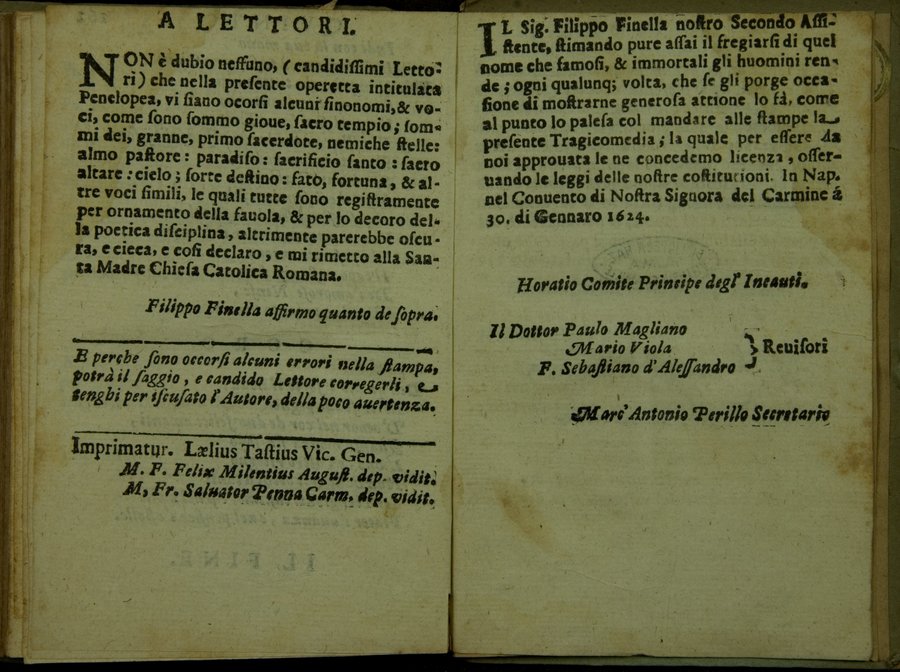 A LETTORI.
NON è dubio neſſuno, (candidiſſimi Letto-
ri) che nella preſente operetta intitulata
Penelopea, vi ſiano ocorſi alcuni ſinonomi, & vo-
ci, come ſono ſommo gioue, ſacro tempio; ſom-
mi dei, granne, primo ſacerdote, nemiche ſtelle:
almo paſtore: paradiſo: ſacrificio ſanto: ſacro
altare: cielo; ſorte deſtino: fato, fortuna, & al-
tre voci ſimili, le quali tutte ſono regiſtramente
per ornamento della fauola, & per lo decoro del-
la poetica diſciplina, altrimente parerebbe oſcu-
ra, e cieca, e coſi declaro, e mi rimetto alla San-
ta Madre Chieſa Catolica Romana.
Filippo Finella affirmo quanto de ſopra.
E perche ſono occorſi alcuni errori nella ſtampa,
potrà il ſaggio, e candido Lettore corregerli, e
tenghi per iſcuſato l'Autore, della poco auertenza.
Imprimatur. Lælius Taſtius Vic. Gen.
M. F. Felix Milentius Auguſt. dep. vidit.
M, Fr. Saluator Penna Carm. dep. vidit.
IL Sig. Filippo Finella noſtro Secondo Aſſi-
ſtente, ſtimando pure aſſai il fregiarſi di quel
nome che famoſi, & immortali gli huomini ren-
de; ogni qualunq; volta, che ſe gli porge occa-
ſione di moſtrarne generoſa attione lo fà, come
al punto lo paleſa col mandare alle ſtampe la
preſente Tragicomedia; la quale per eſſere da
noi approuata le ne concedemo licenza, oſſer-
uando le leggi delle noſtre coſtitutioni. In Nap.
nel Conuento di Noſtra Signora del Carmine á
30. di Gennaro 1624.
Horatio Comite Principe degl' Incauti.
Il Dottor Paulo Magliano
Mario Viola } Reuiſori
F. Sebaſtiano d'Aleſſandro
Marc' Antonio Perillo Secretario